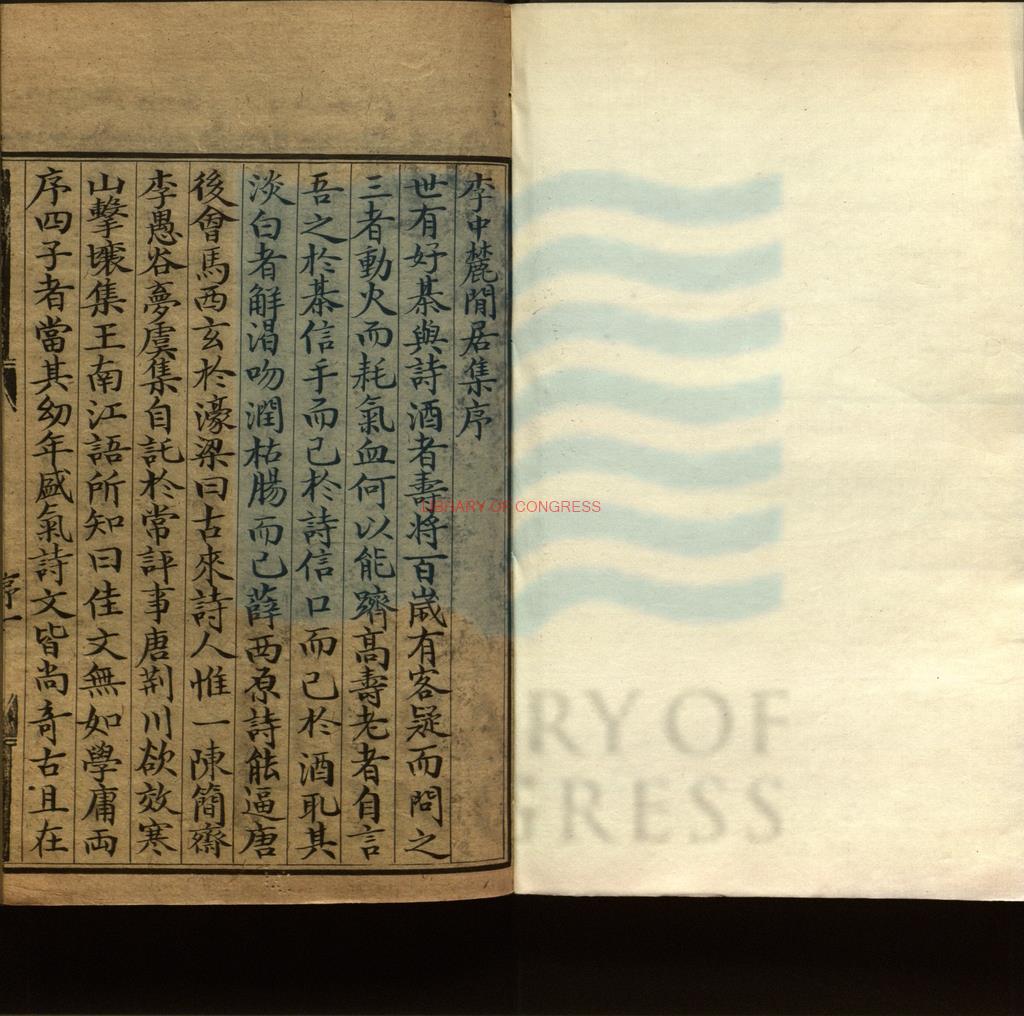 李中麓閒居集序
世有好棊與詩酒者壽将百歲有客疑而問之
三者動火而耗氣血何以能躋高壽老者自言
吾之於棊信手而已於詩信口而已於酒耴其
淡白者解渴吻潤枯腸而已薛西原詩能逼唐
後會馬西玄於濠梁曰古來詩人惟一陳簡齋
李愚谷夢虞集自託於常評事唐荆川欲效寒
山擊壤集王南江語所知曰佳文無如學庸兩
序四子者當其幼年盛氣詩文皆尚奇古且在
序一
LIBRARY OF CONGRESS
RY OF
GRESS